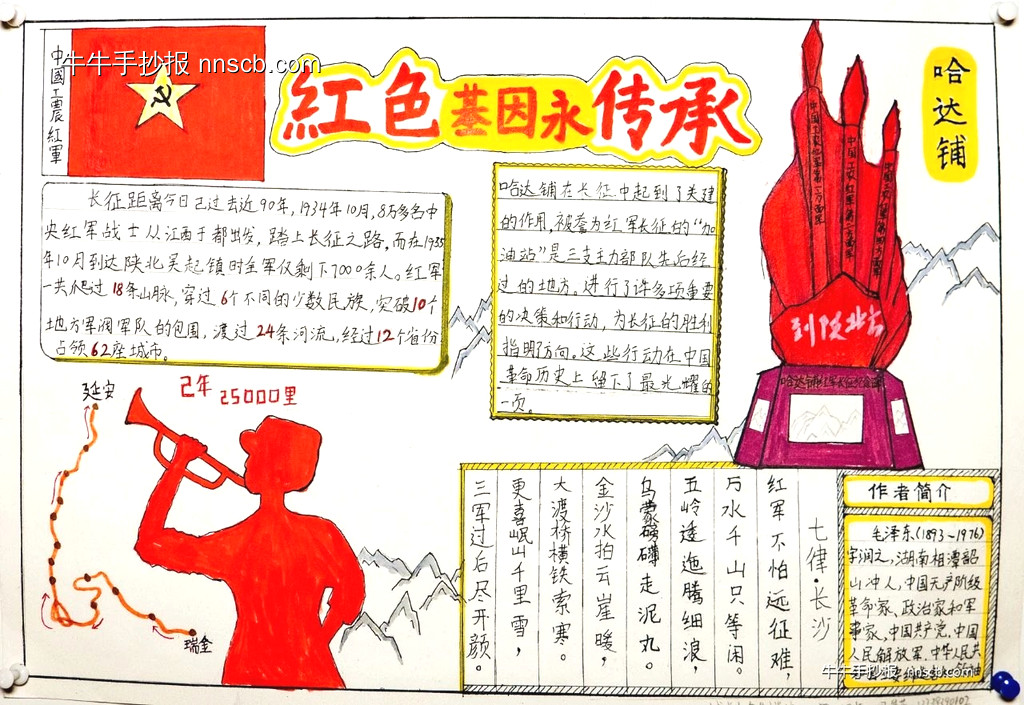 牛牛手抄报 nnscb.com
中國工農紅軍
紅色基因永传承
哈达铺
长征距离今日己过去近90年,1934年10月,8万多名中
央红军战士从江西于都出发,踏上长征之路,而在1935
年10月到达陕北吴起镇时全军仅剩下7000余人。红军
一共爬过18条山脉,穿过6个不同的少数民族,突破10个
地方军阀军队的包围,渡过24条河流,经过12个省份
占领62座城市。
哈达铺在长征中起到了关建
的作用,被誉为红军长征的“加
油站”是三支主力部队先后经
过的地方。进行了许多项重要
的决策和行动,为长征的胜利
指明了方向。这些行动在中国
革命历史上留下了最光耀的
一页。
到陕北去
延安
2年
25000里
瑞金
七律·长沙
红军不怕远征难,
万水千山只等闲。
五岭逶迤腾细浪,
乌蒙磅礴走泥丸。
金沙水拍云崖暖,
大渡桥横铁索寒。
更喜岷山千里雪,
三军过后尽开颜。
作者简介
毛泽东(1893-1976)
字润之,湖南相潭韶
山冲人,中国无产阶级
革命家、政治家和军
事家,中国共产党、中国
人民解放军、中华人民共
牛牛手抄报 nnscb.com